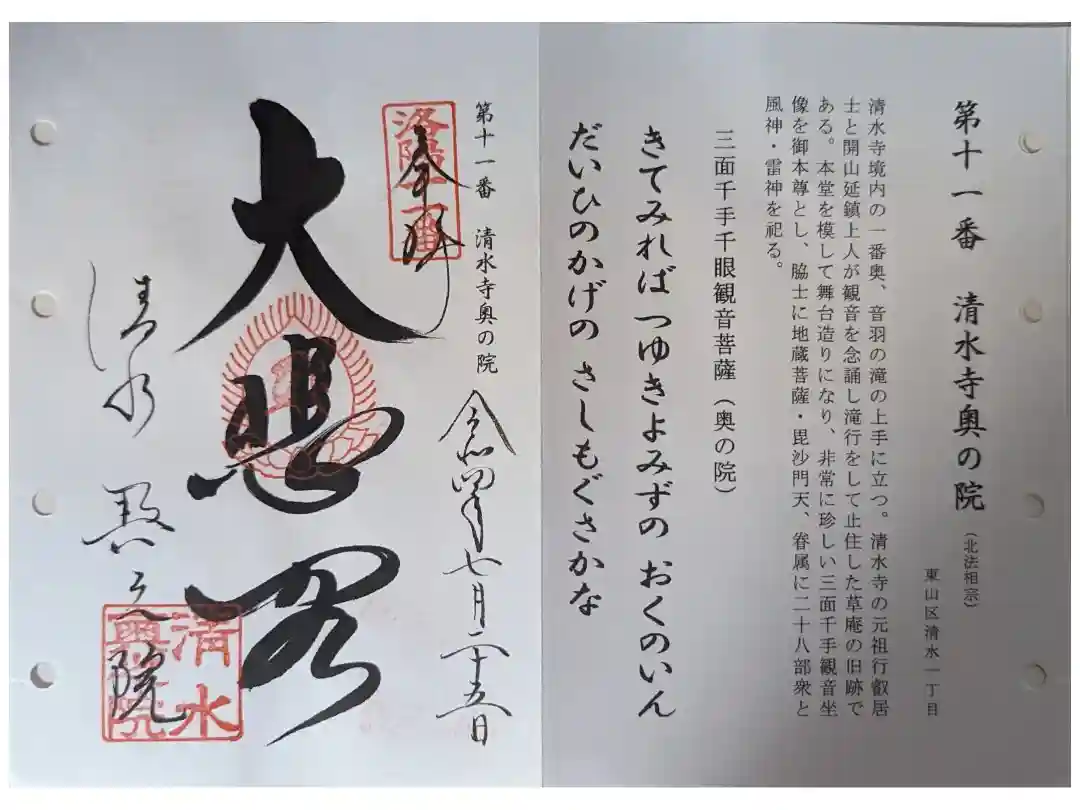 第十一番　清水寺奥の院
（北法相宗）
東山区清水一丁目
清水寺境内の一番奥、音羽の滝の上手に立つ。清水寺の元祖行叡居
士と開山延鎮上人が観音を念誦し滝行をして止住した草庵の旧跡で
ある。本堂を模して舞台造りになり、非常に珍しい三面千手観音坐
像を御本尊とし、脇士に地蔵菩薩・毘沙門天、眷属に二十八部衆と
風神・雷神を祀る。
三面千手千眼観音菩薩（奥の院）
きてみればつゆきよみずの おくのいん
だいひのかげの さしもぐさかな
第十一番　清水寺奥の院
令和四年七月二十五日
奉拝
洛陽十一番
大悲閣
清水
奥之院
清水
奥院